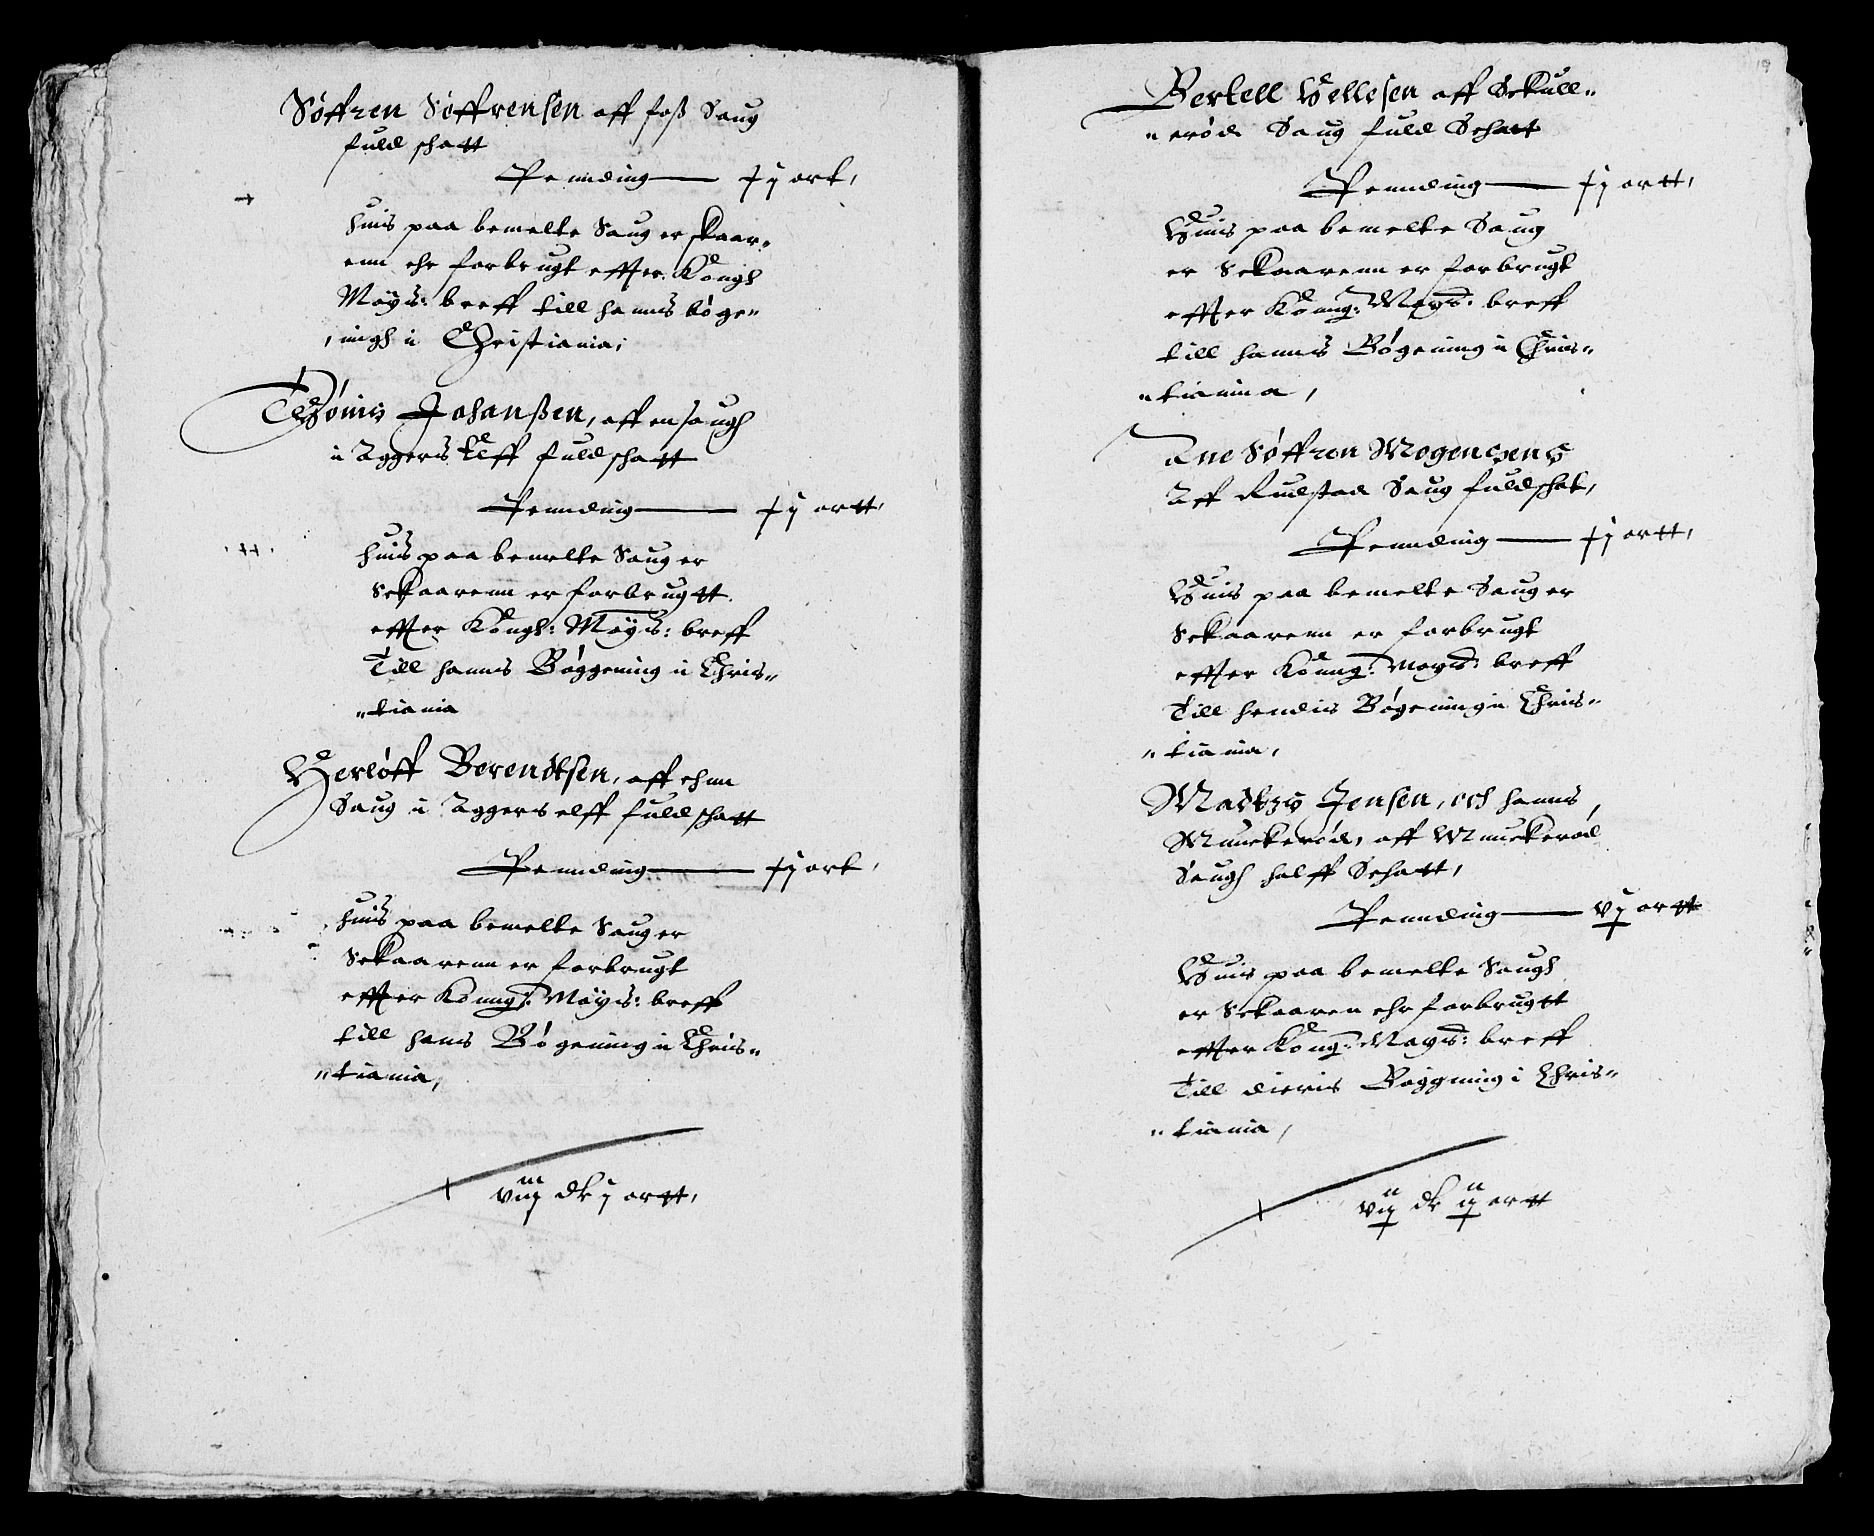 Søffren Søffrensen aff foss Saug
fuld schatt
Pennding — xj ort,
huis paa bemelte Saug er skaar„
enn ehr forbrugt effter Kongh
Mayis: breff till hanns bøge„
„ningh i Christiania;
Thønis Johanssen, aff en saugh
i Aggers Elff fuld schatt
Pennding — xj ortt,
huis paa bemelte Saug er
Sckaarenn er forbrugtt
effter Kongh: Mayis: breff
Till hanns Bøggening i Chris„
„tiania
Herløff Berendtsen, aff ehnn
Saug i Aggers elff fuld schatt
Pennding — xj ort,
huis paa bemelte Saug er
Sckaarenn er forbrugt
effter Konng: Mayis: breff
till hans Bøgening i Chris„
„tiania,
viij dr j ortt,
19
Bertell Hellesen aff Sckull„
„erød Saug fuld Schatt
Pennding — xj ortt,
Huis paa bemelte Saug
er Sckaarenn er forbrugt
effter Konng: Mayis: breff
till hanns Bøgening i Chris„
„tiania,
Ane Søffren Mogensens
Aff Rudstad Saug fuld schat,
Pennding — xj ortt,
Huis paa bemelte Saug er
Sckaarenn er forbrugt
effter Konng: Mayis: breff
Till hendis Bøgening i Chris„
„tiania,
Matzs Jensen, och hanns
Munckerød, aff Munckerød
Saugh halff Schatt,
Pennding — vj ortt
Huis paa bemelte Saugh
er Sckaaren ehr forbrugtt
effter Kong: Mayis: breff
Till dieris Bøggning i Chris„
„tiania,
vij dr ij ortt